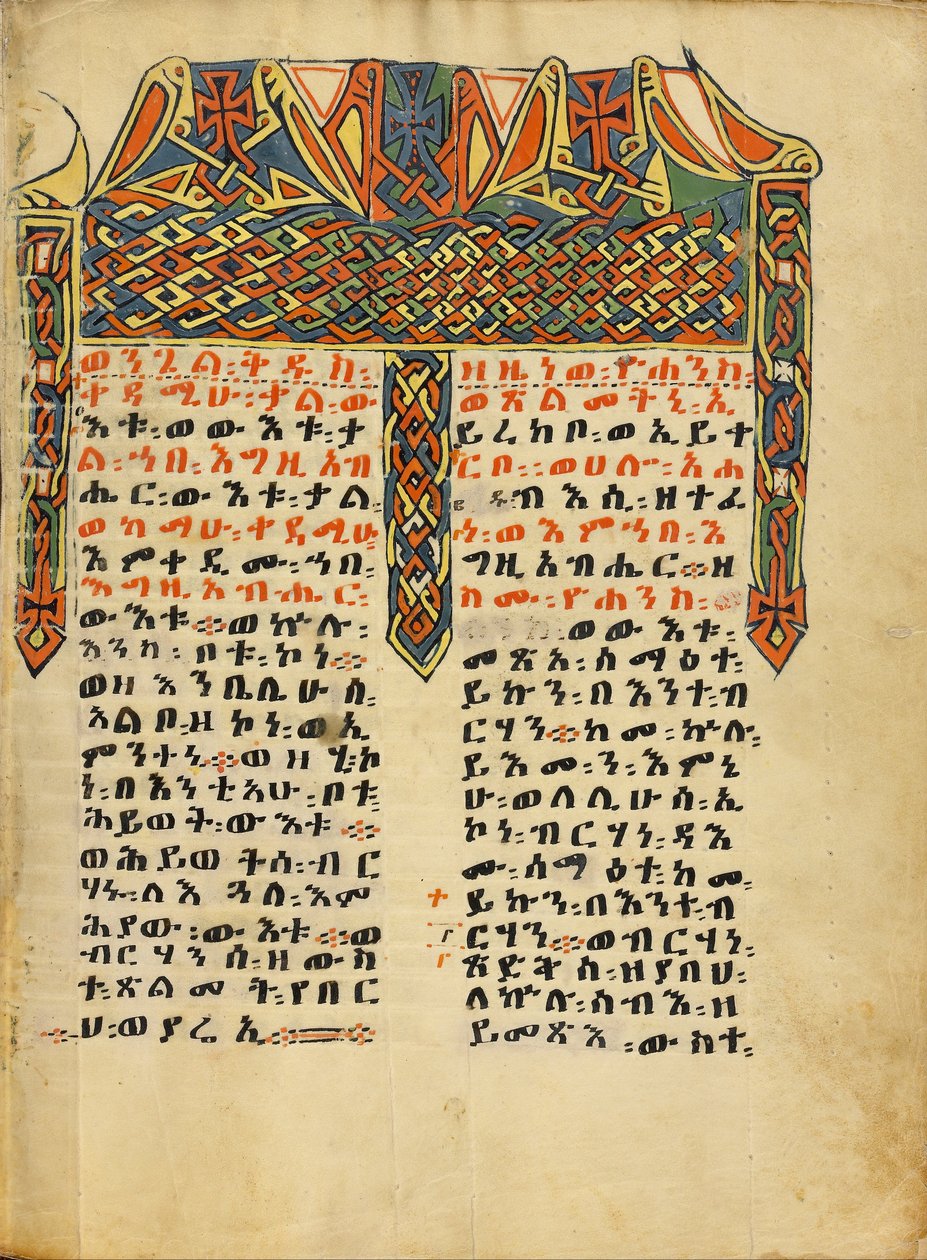 ወንጌል፡ቅዱስ፡
ቀዳሚሁ፡ቃል፡ው
እቱ፡ወውእቱ፡ቃ
ል፡ኀበ፡እግዚአብ
ሔር፡ውእቱ፡ቃል፡
ወከማሁ፡ቀዳሚሁ
እምቀዲሙ፡ኀበ፡
እግዚአብሔር፡
ውእቱ፨ወኵሉ፡
እንከ፡ቦቱ፡ኮነ፨
ወዘእንቤሊሁሰ፡
አልቦ፡ዘኮነ፡ወኢ
ምንተኒ፨ወዘሂ፡ኮ
ነ፡በእንቲአሁ፡ቦቱ፡
ሕይወት፡ውእቱ፨
ወሕይወትሰ፡ብር
ሃኑ፡ለእጓለ፡እም
ሕያው፡ውእቱ፨ወ
ብርሃንሰ፡ዘውስ
ተ፡ጽልመት፡የበር
ሀ፡ወያሬኢ፨
ዘዜነወ፡ዮሐንስ፡
ወጽልመትኒ፡ኢ
ይረክቦ፡ወኢይተ
ርቦ፡፡ወሀሎ፡አሐ
ዱ፡ብእሲ፡ዘተፈ
ነ፡ወእምኀበ፡እ
ግዚአብሔር፨ዘ
ስሙ፡ዮሐንስ፡
ወውእቱ፡
መጽአ፡ሰማዕተ፡
ይኩን፡በእንተ፡ብ
ርሃን፨ከመ፡ኵሉ፡
ይእመን፡እምኔ
ሁ፡ወለሊሁሰ፡ኢ
ኮነ፡ብርሃነ፡ዳእ
ሙ፡ሰማዕተ፡ከመ፡
ይኩን፡በእንተ፡ብ
ርሃን፨ወብርሃነ፡
ጽድቅሰ፡ዘያበህ፡
ለኵሉ፡ሰብእ፡ዘ
ይመጽእ፡ውስተ፡